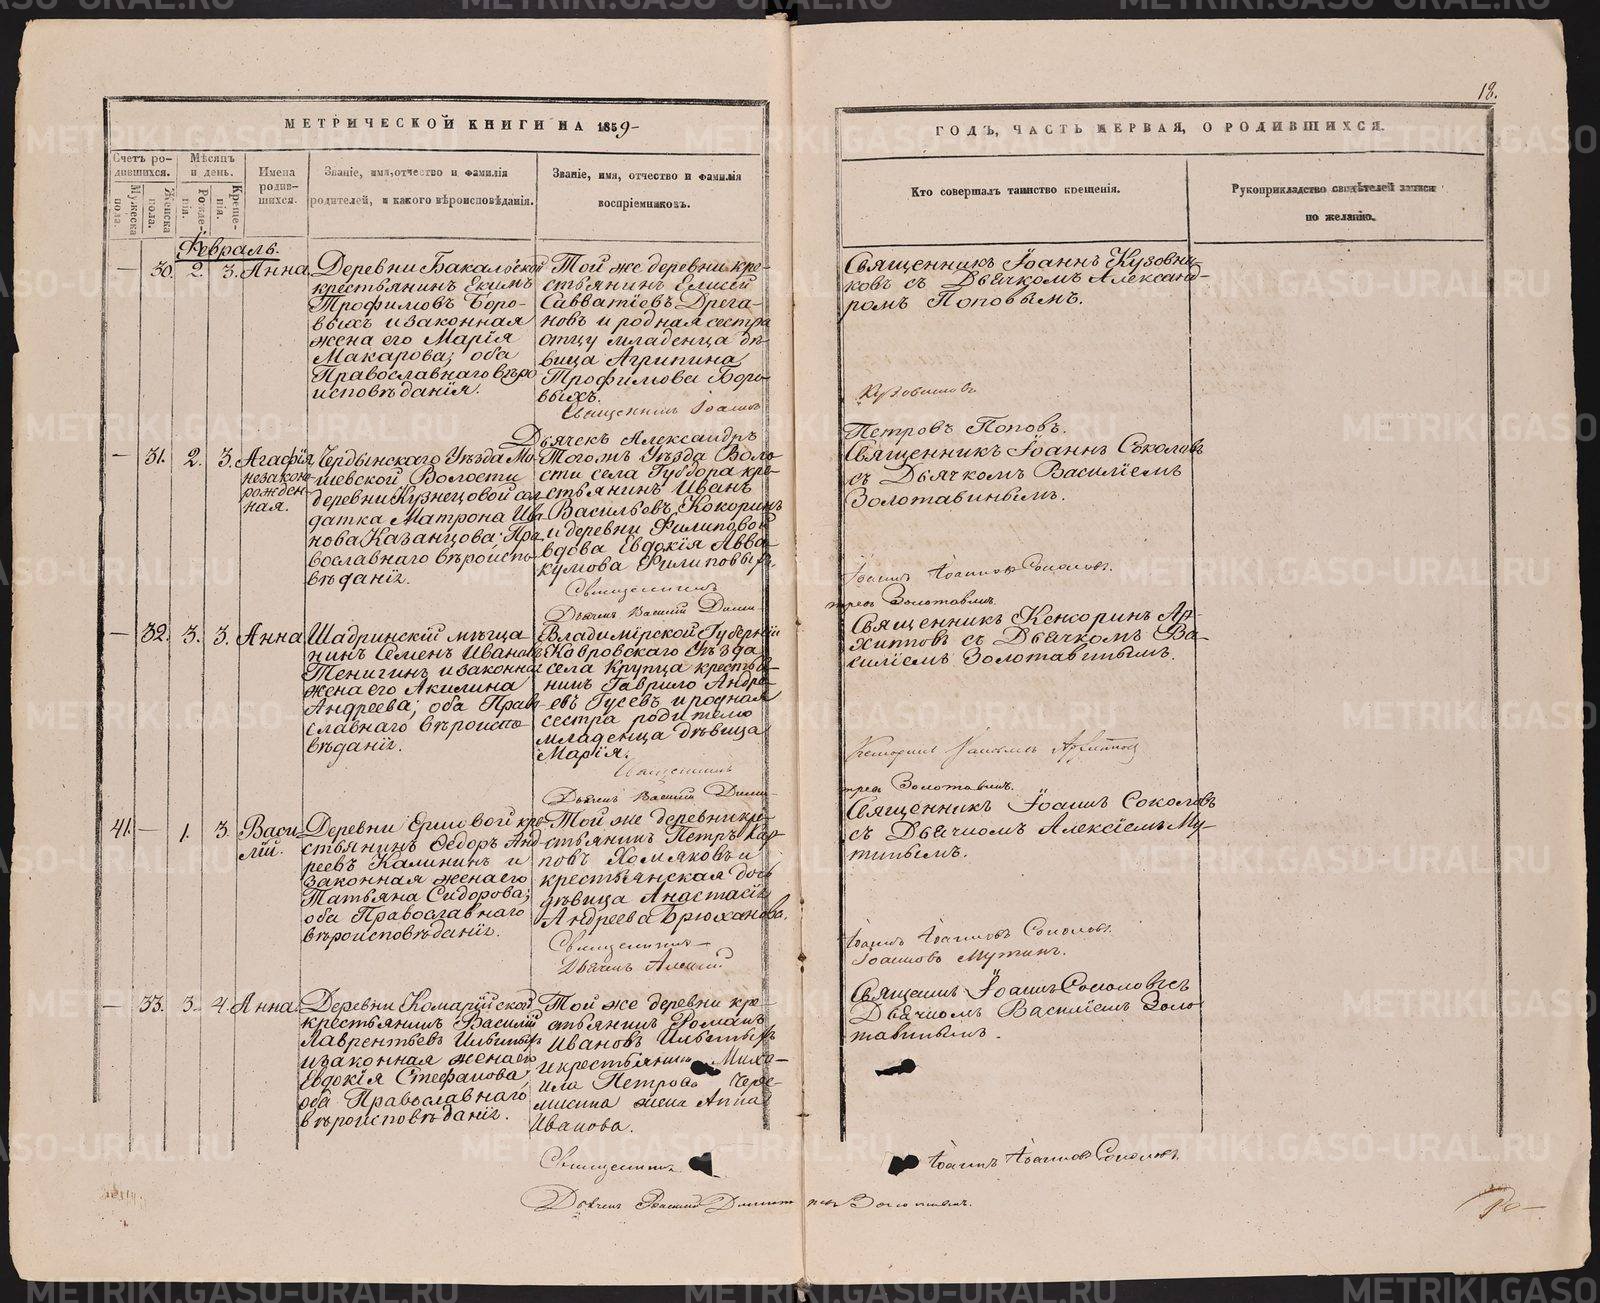 18.
МЕТРИЧЕСКОЙ КНИГИ НА 1859
ГОДЪ, ЧАСТЬ ПЕРВАЯ, О РОДИВШИХСЯ.
Счетъ ро-
дившихся.
Мужеска
пола.
Женска
пола.
Мѣсяцъ
и день.
Рожде-
нія.
Креще-
нія.
Имена
родив-
шихся.
Званіе, имя, отчество и фамилія
родителей, и какого вѣроисповѣданія.
Званіе, имя, отчество и фамилія
воспріемниковъ.
Кто совершалъ таинство крещенія.
Рукоприкладство свидѣтелей записи
по желанію.
Февраль.
— 30. 2. 3. Анна
Деревни Бакальской
крестьянинъ Екимъ
Трофимовъ Боро-
выхъ и законная
жена его Марія
Макарова; оба
Православнаго вѣро
исповѣданія.
Той же деревни кре-
стьянинъ Елисей
Савватіевъ Дрега-
новъ и родная сестра
отцу младенца дѣ-
вица Агрипина
Трофимова Боро-
выхъ.
Священникъ Іоаннъ
Дьячекъ Александръ
Священникъ Іоаннъ Кузовни-
ковъ съ Дьячкомъ Александ-
ромъ Поповымъ.
Кузовниковъ
Петровъ Поповъ.
— 31. 2. 3. Агафія
незакон-
рожден-
ная.
Чердынскаго Уѣзда Мо-
шевской Волости
деревни Кузнецовой сол
датка Матрона Ива
нова Казанцова; Пра
вославнаго вѣроиспо-
вѣданія.
Тогожъ Уѣзда Воло-
сти села Губдора кре-
стьянинъ Иванъ
Васильевъ Кокоринъ
и деревни Филиповой
вдова Евдокія Авва-
кумова Филиповыхъ.
Священникъ
Дьячекъ Василій Дими-
Священникъ Іоаннъ Соколовъ
съ Дьячкомъ Василіемъ
Золотавинымъ.
Іоаннъ Іоанновъ Соколовъ.
тревъ Золотавинъ.
— 32. 3. 3. Анна
Шадринскій мѣща
нинъ Семенъ Ивановъ
Тенигинъ и законная
жена его Акилина
Андреева; оба Право
славнаго вѣроиспо-
вѣданія.
Владимірской Губерніи
Ковровскаго Уѣзда
села Крутца крестья-
нинъ Гаврило Андре-
евъ Гусевъ и родная
сестра родителю
младенца дѣвица
Марія.
Священникъ
Дьячекъ Василій Дими-
Священникъ Кенсоринъ Ар-
хиповъ съ Дьячкомъ Ва-
силіемъ Золотавинымъ.
тревъ Золотавинъ.
41. — 1. 3. Васи
лій.
Деревни Ершовой кре-
стьянинъ Ѳедоръ Анд
реевъ Калининъ и
законная жена его
Татьяна Сидорова;
оба Православнаго
вѣроисповѣданія.
Той же деревни кре-
стьянинъ Петръ Кар-
повъ Хомяковъ и
крестьянская дочь
дѣвица Анастасія
Андреева Брюханова.
Священникъ
Дьячекъ Алексій
Священникъ Іоаннъ Соколовъ
съ Дьячкомъ Алексіемъ Му-
тинымъ.
Іоаннъ Іоанновъ Соколовъ.
Іоанновъ Мутинъ.
— 33. 3. 4. Анна
Деревни Комарійской
крестьянинъ Василій
Лаврентьевъ
и законная жена его
Евдокія Стефанова;
оба Православнаго
вѣроисповѣданія.
Той же деревни кре-
стьянинъ Романъ
Ивановъ
и крестьянина Миха-
ила Петрова Чере-
мисина жена Анна
Иванова.
Священникъ
Дьячекъ Василій Димит
Священникъ Іоаннъ Соколовъ съ
Дьячкомъ Василіемъ Золо
тавинымъ.
Іоаннъ Іоанновъ Соколовъ.
ревъ Золотавинъ.
METRIKI.GASO-URAL.RU